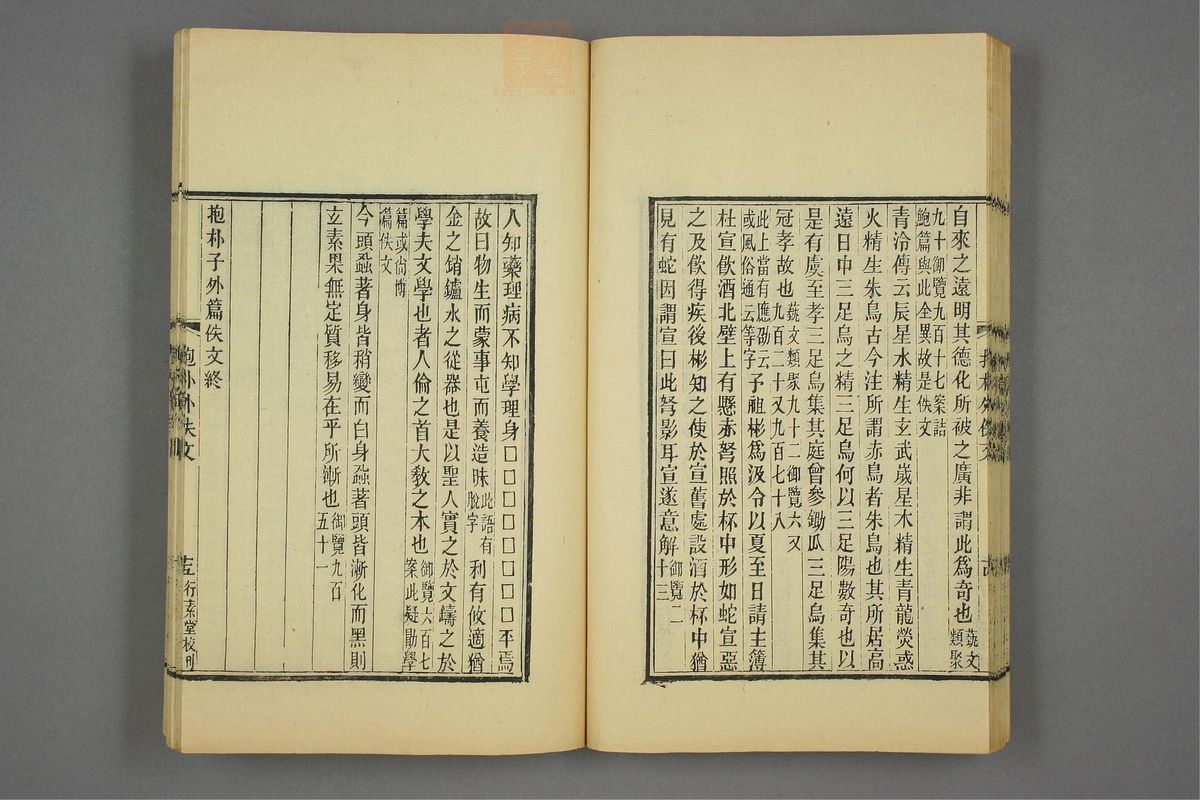 自來之遠明其德化所被之廣非謂此爲奇也藝文類聚
九十御覽九百十七案詰鮑篇與此全異故是佚文
青泠傳云辰星水精生玄武歲星木精生青龍熒惑
火精生朱鳥古今注所謂赤鳥者朱鳥也其所居高
遠日中三足烏之精三足烏何以三足陽數奇也以
是有虞至孝三足烏集其庭曾參鋤瓜三足烏集其
冠孝故也藝文類聚九十二御覽六又九百二十又九百七十八
此上當有應劭云或風俗通云等字予祖彬爲汲令以夏至日請主簿
杜宣飲酒北壁上有懸赤弩照於杯中形如蛇宣惡
之及飲得疾後彬知之使於宣舊處設酒於杯中猶
見有蛇因謂宣曰此弩影耳宣遂意解御覽二十三
抱朴外佚文
人知藥理病不知學理身□□□□□□□□平焉
故曰物生而蒙事屯而養造昧此語有脫字利有攸適猶
金之銷鑪水之從器也是以聖人實之於文鑄之於
學夫文學也者人倫之首大教之本也御覽六百七案此疑勖學
篇或尚博篇佚文
今頭蝨著身皆稍變而白身蝨著頭皆漸化而黑則
玄素果無定質移易在乎所漸也御覽九百五十一
抱朴子外篇佚文終
抱朴外佚文
行素堂校刊